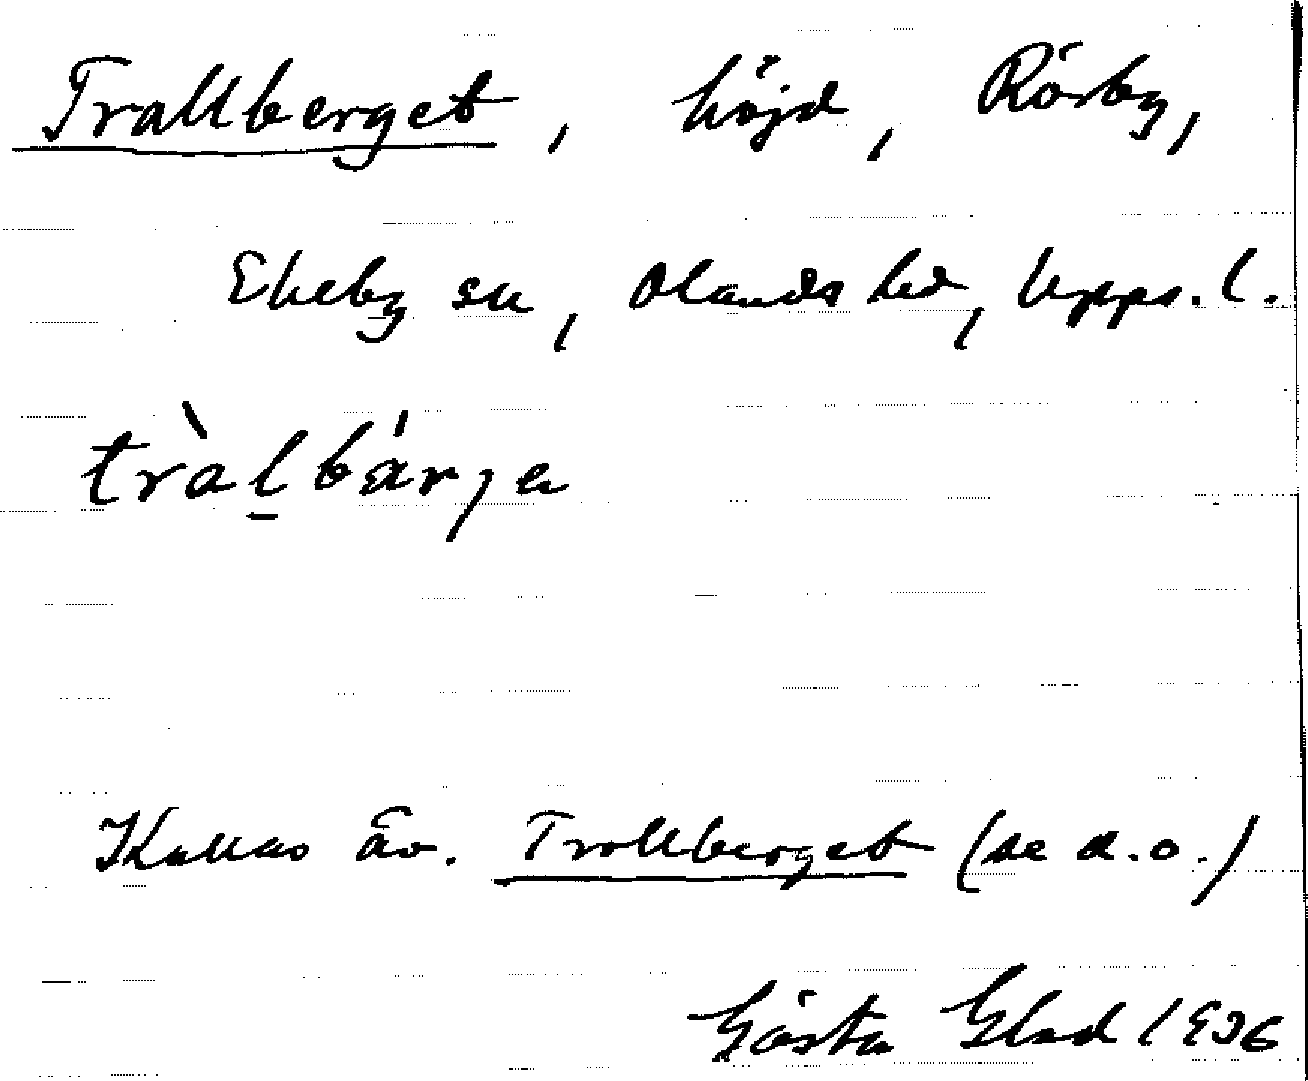 Trallberget, höjd, Rörby,
Ekeby sn, Olands hd, Upps. l.
tràḻbárja
Kallas äv. Trollberget (se d.o.)
Gösta Glad 1936